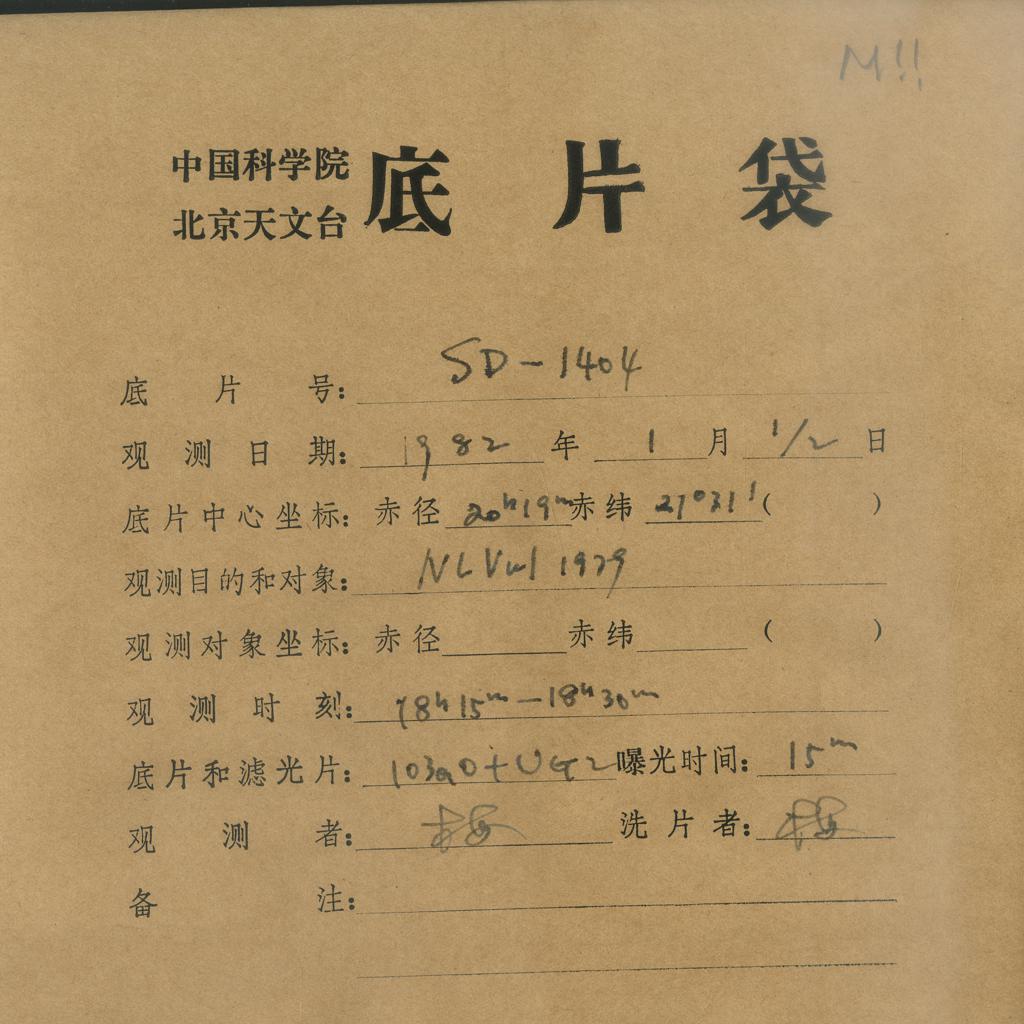 M!!
中国科学院
北京天文台 底片袋
底片号: SD-1404
观测日期: 1982年1月1/2日
底片中心坐标: 赤径 20h19m 赤纬 21°31' ( )
观测目的和对象: N Vul 1979
观测对象坐标: 赤径 赤纬 ( )
观测时刻: 18h15m-18h30m
底片和滤光片: 103aO+UG2 曝光时间: 15m
观测者: 梅 洗片者: 梅
备注: